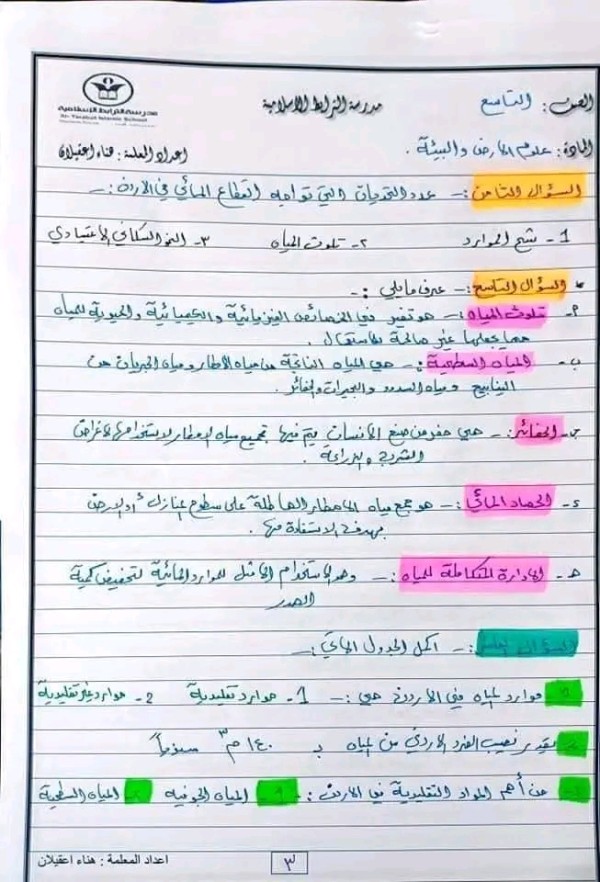 مدرسة الترابط الإسلامية
Al-Tarabut Islamic School
الصف: التاسع
مدرسة الترابط الاسلامية
المادة: علوم الارض والبيئة.
اعداد المعلمة: هناء اعقيلان
السؤال الثامن :- عدد التحديات التي تواجه القطاع المائي في الاردن :-
1- شح الموارد ٢- تلوث المياه ٣- النمو السكاني الاعتيادي
* السؤال التاسع :- عرف مايلي :-
أ- تلوث المياه :- هو تغير في الخصائص الفيزيائية والكيميائية والحيوية للمياه
مما يجعلها غير صالحة للاستعمال.
ب- المياه السطحية :- هي المياه الناتجة من مياه الامطار ومياه الجريان من
الينابيع ومياه السدود والبحيرات والحفائر.
ج- الحفائر :- هي حفر من صنع الانسان يتم فيها تجميع مياه الامطار لاستخدامها لأغراض
الشرب والزراعة.
د- الحصاد المائي :- هو جمع مياه الامطار الهاطلة على سطوح المنازل أو الارض
بهدف الاستفادة منها.
هـ- الادارة المتكاملة للمياه :- وهو الاستخدام الامثل للموارد المائية لتخفيض كمية
الهدر
السؤال :- اكمل الجدول التالي :-
موارد المياه في الاردن هي :- 1- موارد تقليدية 2- موارد غير تقليدية
يقدر نصيب الفرد الاردني من المياه بـ ١٤٠ م٣ سنوياً
من أهم المواد التقليدية في الاردن : المياه الجوفيه المياه السطحية
اعداد المعلمة : هناء اعقيلان
٣